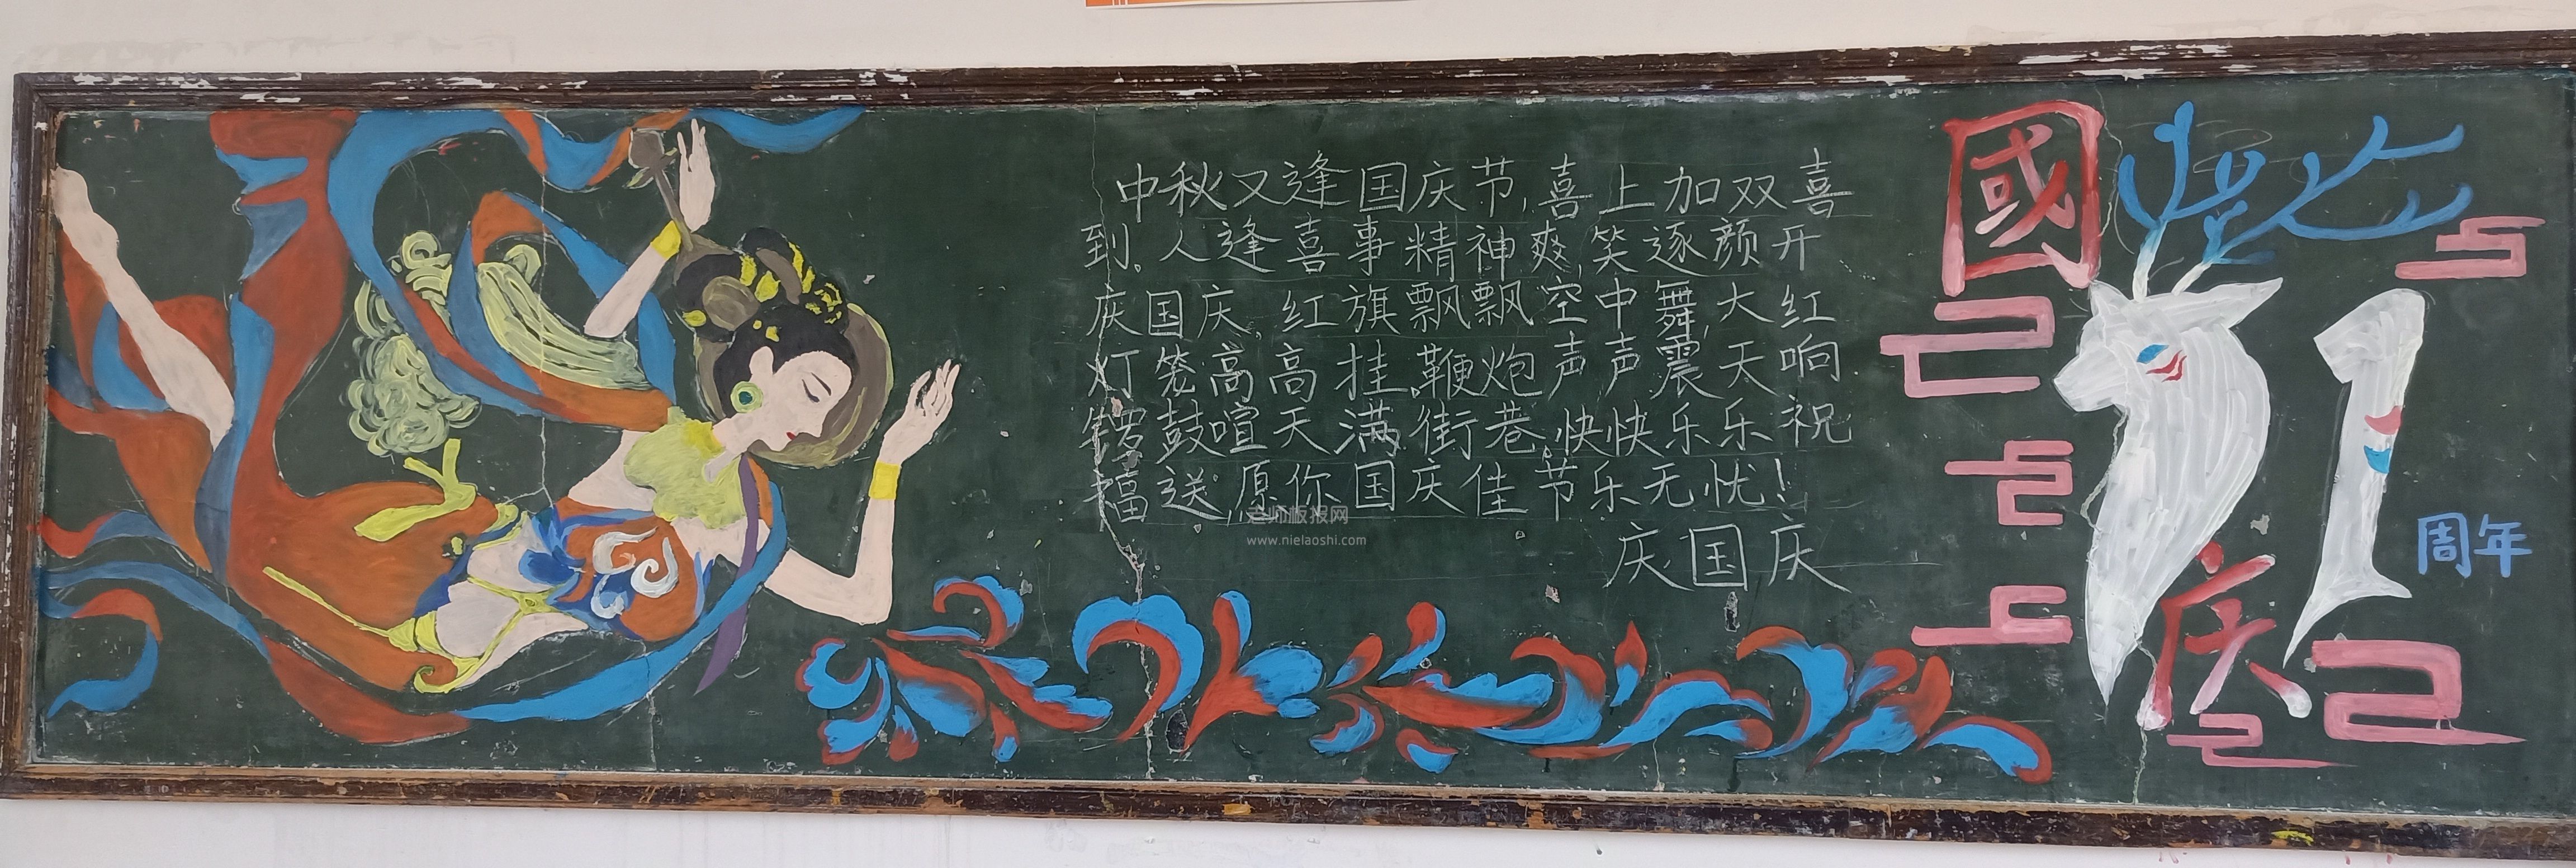 中秋又逢国庆节,喜上加双喜
到。人逢喜事精神爽,笑逐颜开
庆国庆。红旗飘飘空中舞,大红
灯笼高高挂,鞭炮声声震天响
锣鼓喧天满街巷,快快乐乐祝
福送,愿你国庆佳节乐无忧!
庆国庆
國
庆
71
周年
老师板报网
www.nielaoshi.com